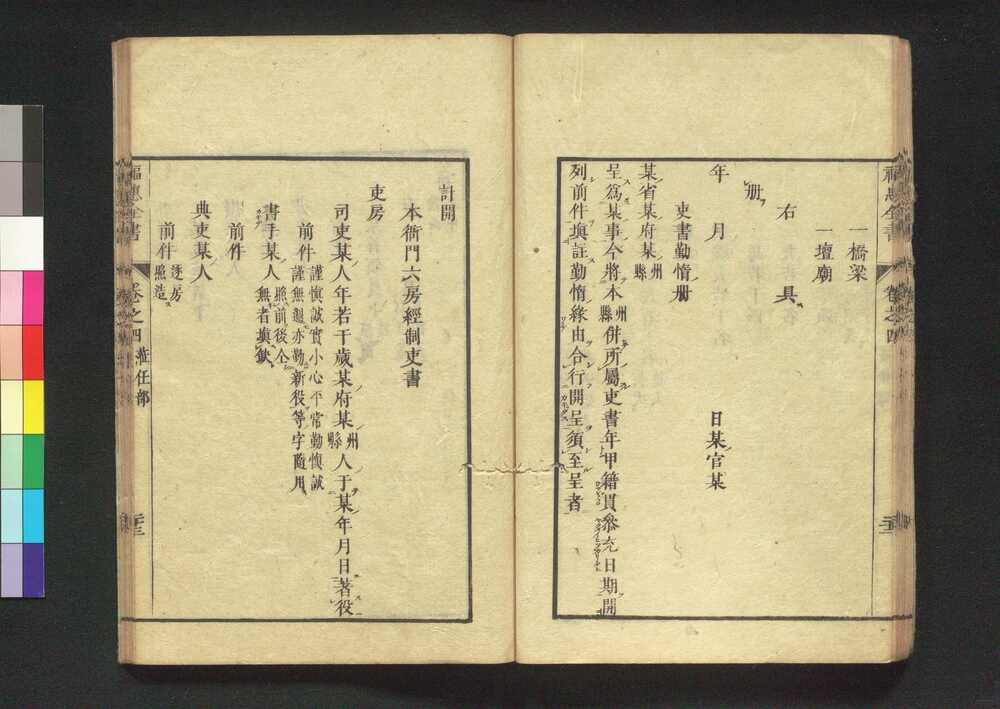 一橋梁
一壇廟
右具
册
年　月　　日某官某
吏書勤惰册
某省某府某州縣
呈爲某事今將本州縣併所屬吏書年甲籍貫叅充日期開
列前件塡註勤惰緣由合行開呈須至呈者
計開
本衙門六房經制吏書
吏房
司吏某人年若干歲某府某州縣人于某年月日著役
前件謹愼誠實小心平常勤愼誠
謹無過亦勤新役等字隨用
書手某人照前後仝
無者塡缺
前件
典吏某人
前件逐房
照造
福惠全書
卷之四　蒞任部
福惠全書
卷之四